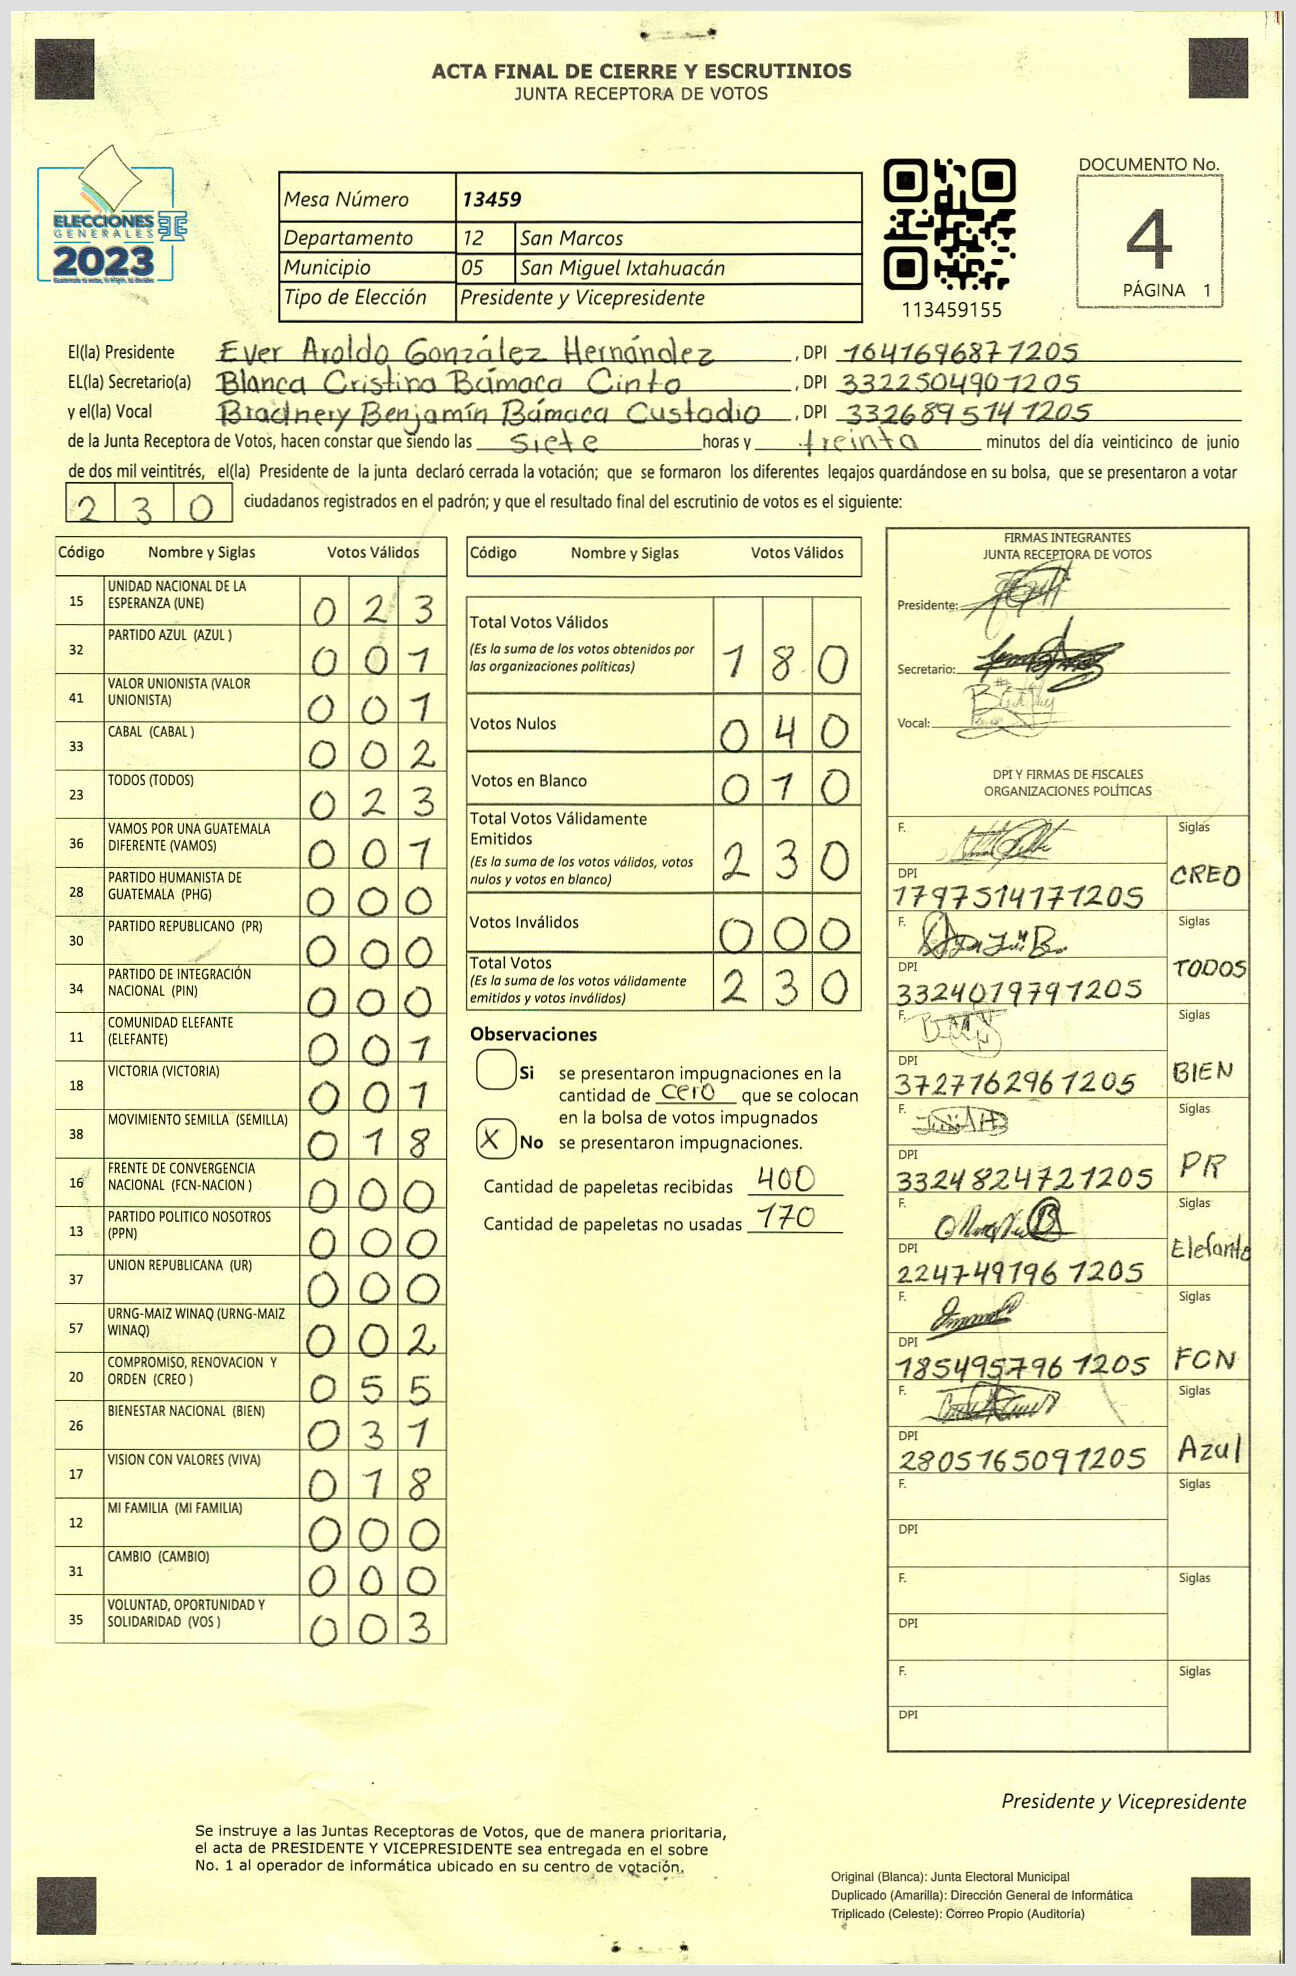 ACTA FINAL DE CIERRE Y ESCRUTINIOS
JUNTA RECEPTORA DE VOTOS
ELECCIONES
GENERALES
2023
Mesa Número 13459
Departamento 12 San Marcos
Municipio 05 San Miguel Ixtahuacán
Tipo de Elección Presidente y Vicepresidente
113459155
DOCUMENTO No.
4
PÁGINA 1
El(la) Presidente Ever Aroldo González Hernández, DPI 1641696871205
EL(la) Secretario(a) Blanca Cristina Bámaca Cinto, DPI 3322504901205
y el(la) Vocal Bradnery Benjamín Bámaca Custodio, DPI 3326895141205
de la Junta Receptora de Votos, hacen constar que siendo las siete horas y treinta minutos del día veinticinco de junio
de dos mil veintitrés, el(la) Presidente de la junta declaró cerrada la votación; que se formaron los diferentes legajos quardándose en su bolsa, que se presentaron a votar
230 ciudadanos registrados en el padrón; y que el resultado final del escrutinio de votos es el siguiente:
Código Nombre y Siglas Votos Válidos
15 UNIDAD NACIONAL DE LA ESPERANZA (UNE) 023
32 PARTIDO AZUL (AZUL ) 001
41 VALOR UNIONISTA (VALOR UNIONISTA) 001
33 CABAL (CABAL ) 002
23 TODOS (TODOS) 023
36 VAMOS POR UNA GUATEMALA DIFERENTE (VAMOS) 001
28 PARTIDO HUMANISTA DE GUATEMALA (PHG) 000
30 PARTIDO REPUBLICANO (PR) 000
34 PARTIDO DE INTEGRACIÓN NACIONAL (PIN) 000
11 COMUNIDAD ELEFANTE (ELEFANTE) 001
18 VICTORIA (VICTORIA) 001
38 MOVIMIENTO SEMILLA (SEMILLA) 018
16 FRENTE DE CONVERGENCIA NACIONAL (FCN-NACION ) 000
13 PARTIDO POLITICO NOSOTROS (PPN) 000
37 UNION REPUBLICANA (UR) 000
57 URNG-MAIZ WINAQ (URNG-MAIZ WINAQ) 002
20 COMPROMISO, RENOVACION Y ORDEN (CREO ) 055
26 BIENESTAR NACIONAL (BIEN) 031
17 VISION CON VALORES (VIVA) 018
12 MI FAMILIA (MI FAMILIA) 000
31 CAMBIO (CAMBIO) 000
35 VOLUNTAD, OPORTUNIDAD Y SOLIDARIDAD (VOS ) 003
Código Nombre y Siglas Votos Válidos
Total Votos Válidos
(Es la suma de los votos obtenidos por
las organizaciones políticas) 180
Votos Nulos 040
Votos en Blanco 010
Total Votos Válidamente
Emitidos
(Es la suma de los votos válidos, votos
nulos y votos en blanco) 230
Votos Inválidos 000
Total Votos
(Es la suma de los votos válidamente
emitidos y votos inválidos) 230
Observaciones
Si se presentaron impugnaciones en la
cantidad de cero que se colocan
en la bolsa de votos impugnados
X No se presentaron impugnaciones.
Cantidad de papeletas recibidas 400
Cantidad de papeletas no usadas 170
FIRMAS INTEGRANTES
JUNTA RECEPTORA DE VOTOS
Presidente:
Secretario:
Vocal:
DPI Y FIRMAS DE FISCALES
ORGANIZACIONES POLÍTICAS
F. Siglas
DPI CREO
1797514171205
F. Siglas
DPI TODOS
3324019791205
F. Siglas
DPI BIEN
3727762961205
F. Siglas
DPI PR
3324824721205
F. Siglas
DPI Elefante
2247491961205
F. Siglas
DPI FCN
1854957961205
F. Siglas
DPI Azul
2805165091205
F. Siglas
DPI
F. Siglas
DPI
F. Siglas
DPI
Presidente y Vicepresidente
Se instruye a las Juntas Receptoras de Votos, que de manera prioritaria,
el acta de PRESIDENTE Y VICEPRESIDENTE sea entregada en el sobre
No. 1 al operador de informática ubicado en su centro de votación.
Original (Blanca): Junta Electoral Municipal
Duplicado (Amarilla): Dirección General de Informática
Triplicado (Celeste): Correo Propio (Auditoría)